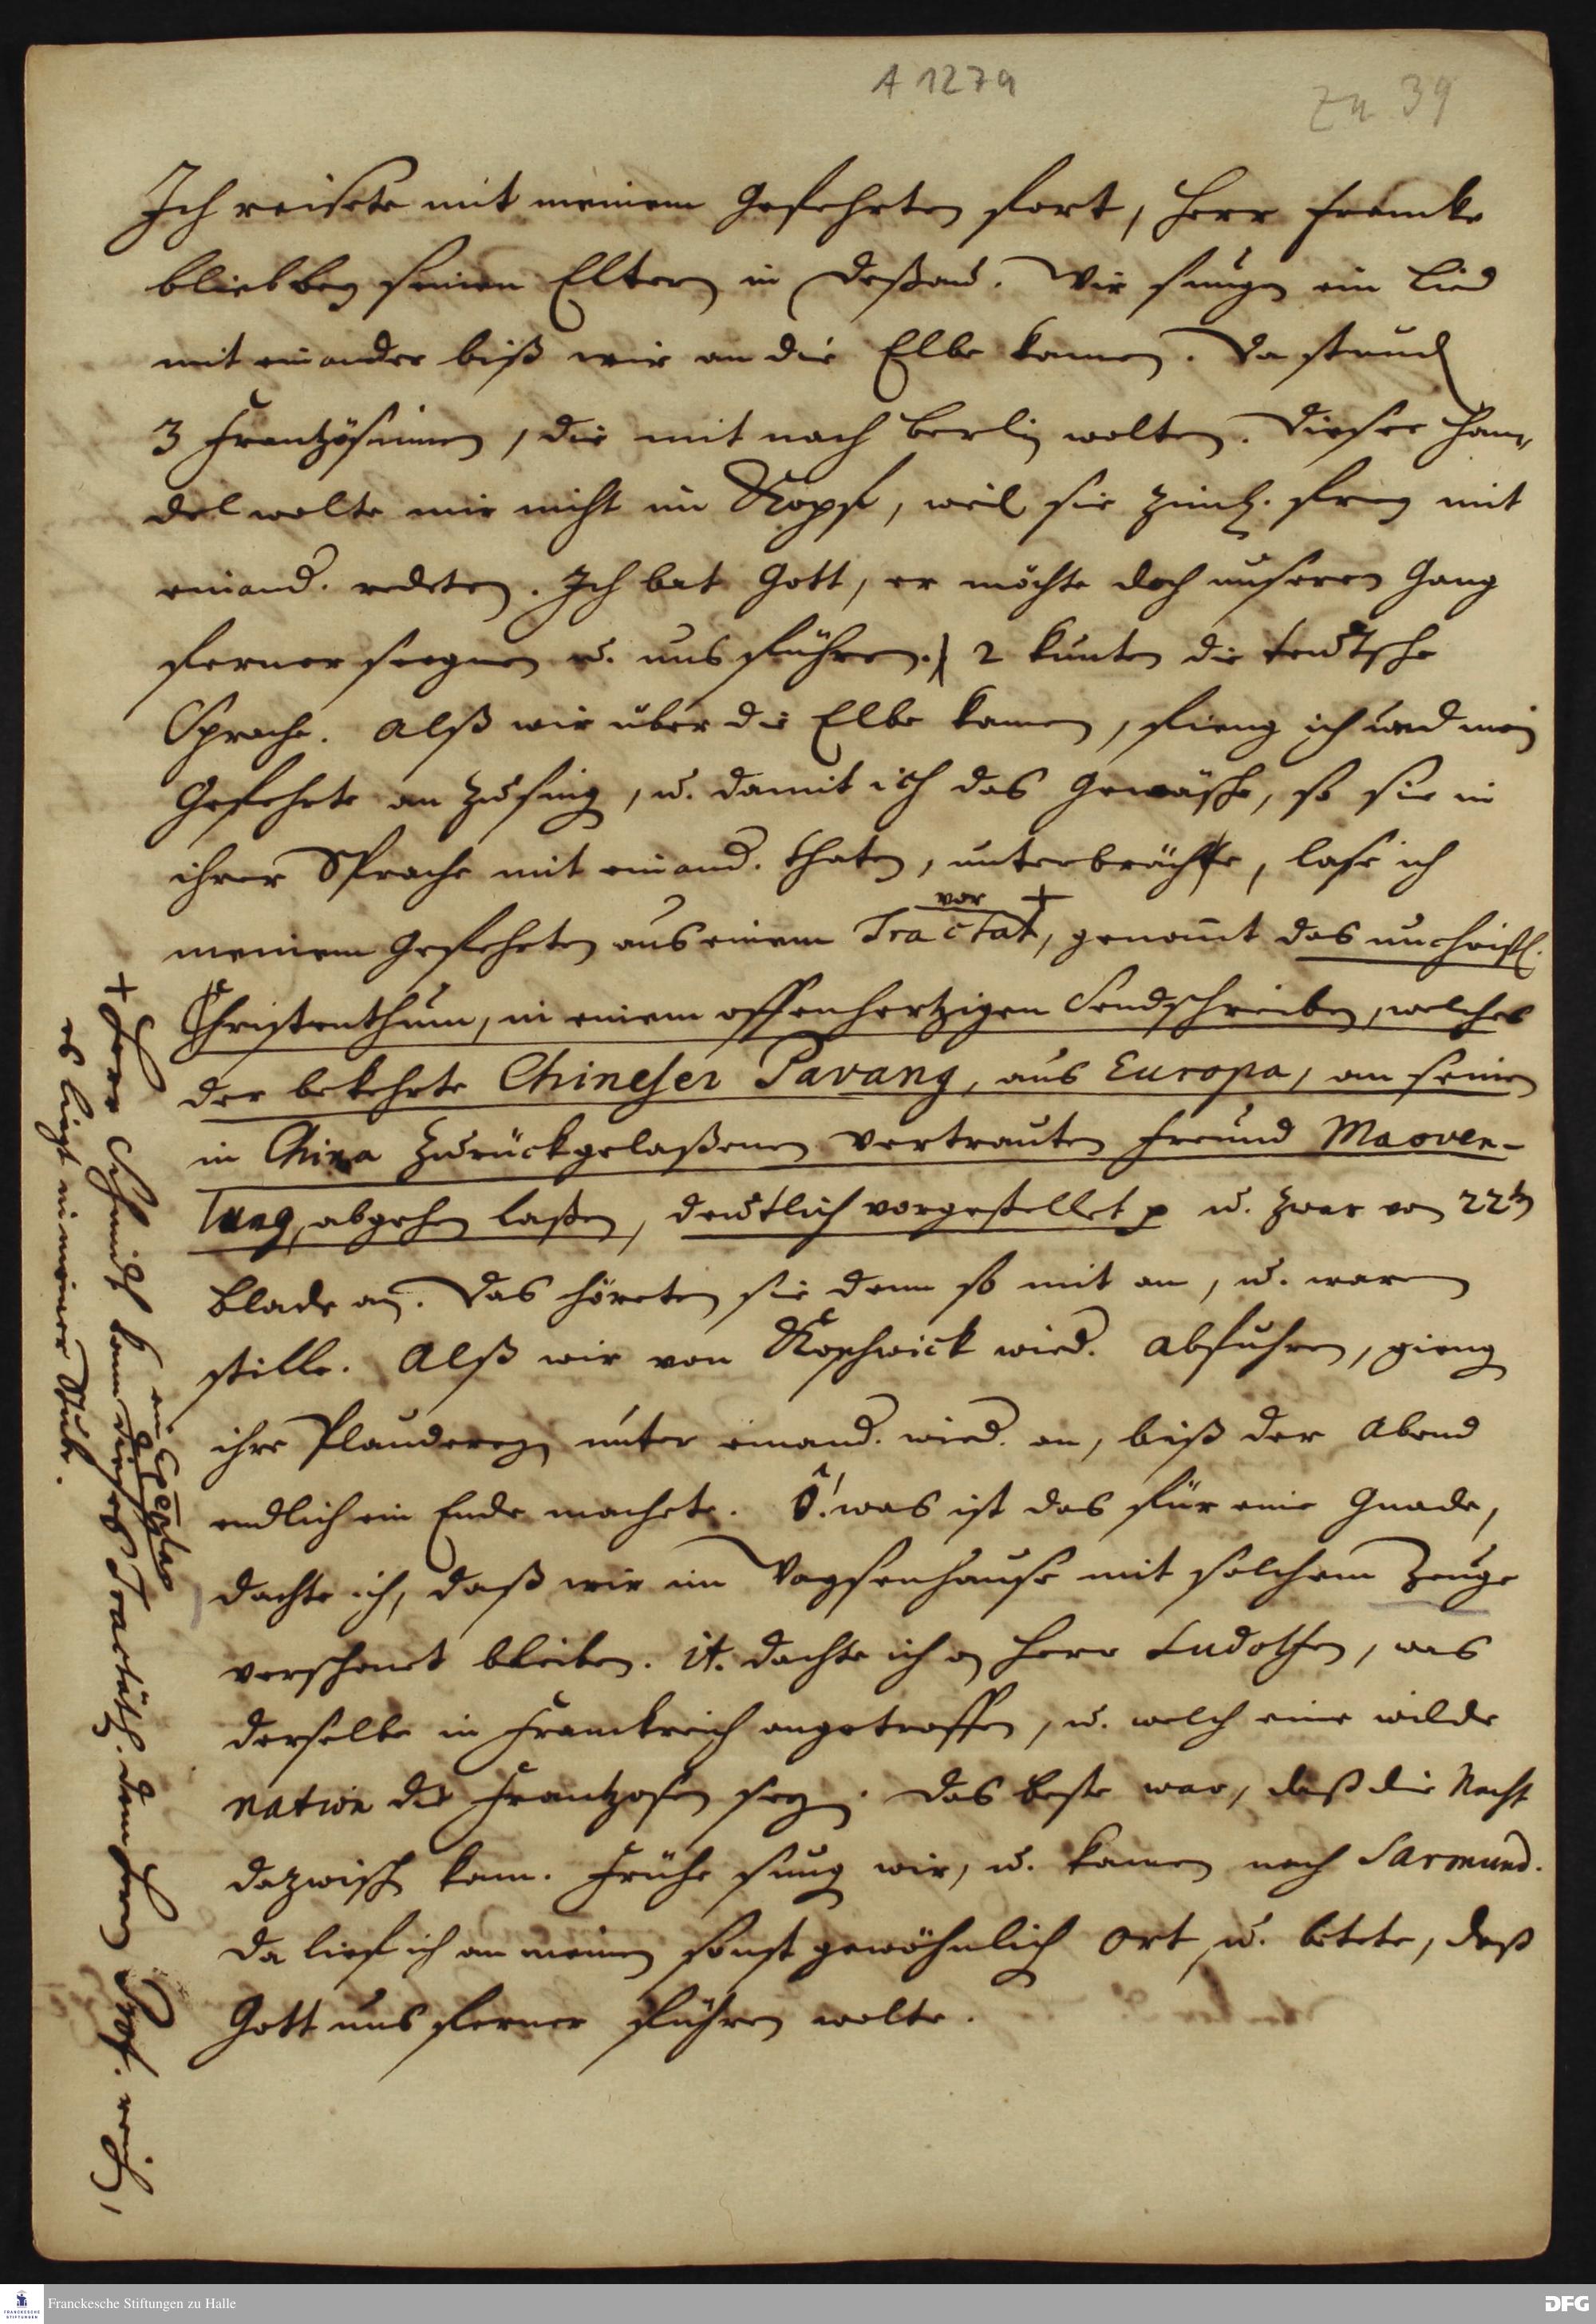 A 127a
zu 39
Ich reisete mit meinem Gefehrten fort, Herr Francke
blieb bey seinen Eltern in Deßau. Wir sungen ein Lied
mit einander biß wir an die Elbe kamen. Da stund
3 Frantzösinnen, die mit nach Berlin wolten. Dieser Han-
del wolte mir nicht im Kopf, weil sie zimlich frey mit
einand. redeten. Ich bat Gott, er möchte doch unseren Gang
ferner seegnen u. uns führen. 2 kunten die teutsche
Sprache. Alß wir über die Elbe kamen, fieng ich und mein
Gefehrte an zu singen, u. damit ich das Gewäsche, so sie in
ihrer Sprache mit einand. thaten, unterbrächte, lase ich
meinem Gefehrten aus einem Tractat vor +, genant das unchristl.
Christenthum, in einem offenhertzigen Sendschreiben, welches
der bekehrte Chineser Pavang, aus Europa, an seinen
in China zurückgelaßenen vertrauten Freund Maoven-
tung, abgehen laßen, deutlich vorgestellet p u. zwar von 22ten
Blade an. Das höreten sie denn so mit an, u. waren
stille. Alß wir von Koschwick wied. abfuhren, gieng
ihre Plauderey unter einand. wied. an, biß der Abend
endlich ein Ende machete. O! was ist das für eine Gnade,
dachte ich, daß wir im Waysenhause mit solchem Zeuge
verschonet bleiben. it. dachte ich an Herr Ludolfen, was
derselbe in Franckreich angetroffen, u. welch eine wilde
nation die Frantzosen sey. Das beste war, daß die Nacht
dazwisch kam. Frühe sung wir, u. kamen nach Sarmund.
Da lief ich an meinen sonst gewöhnlich Ort, u. betete, daß
Gott uns ferner führen wolte.
+ Herr Schmidt kan dieses Tractätch. dem Herrn Prof.
es liegt in meiner Stube.
Franckesche Stiftungen zu Halle
FRANCKESCHE STIFTUNGEN
DFG